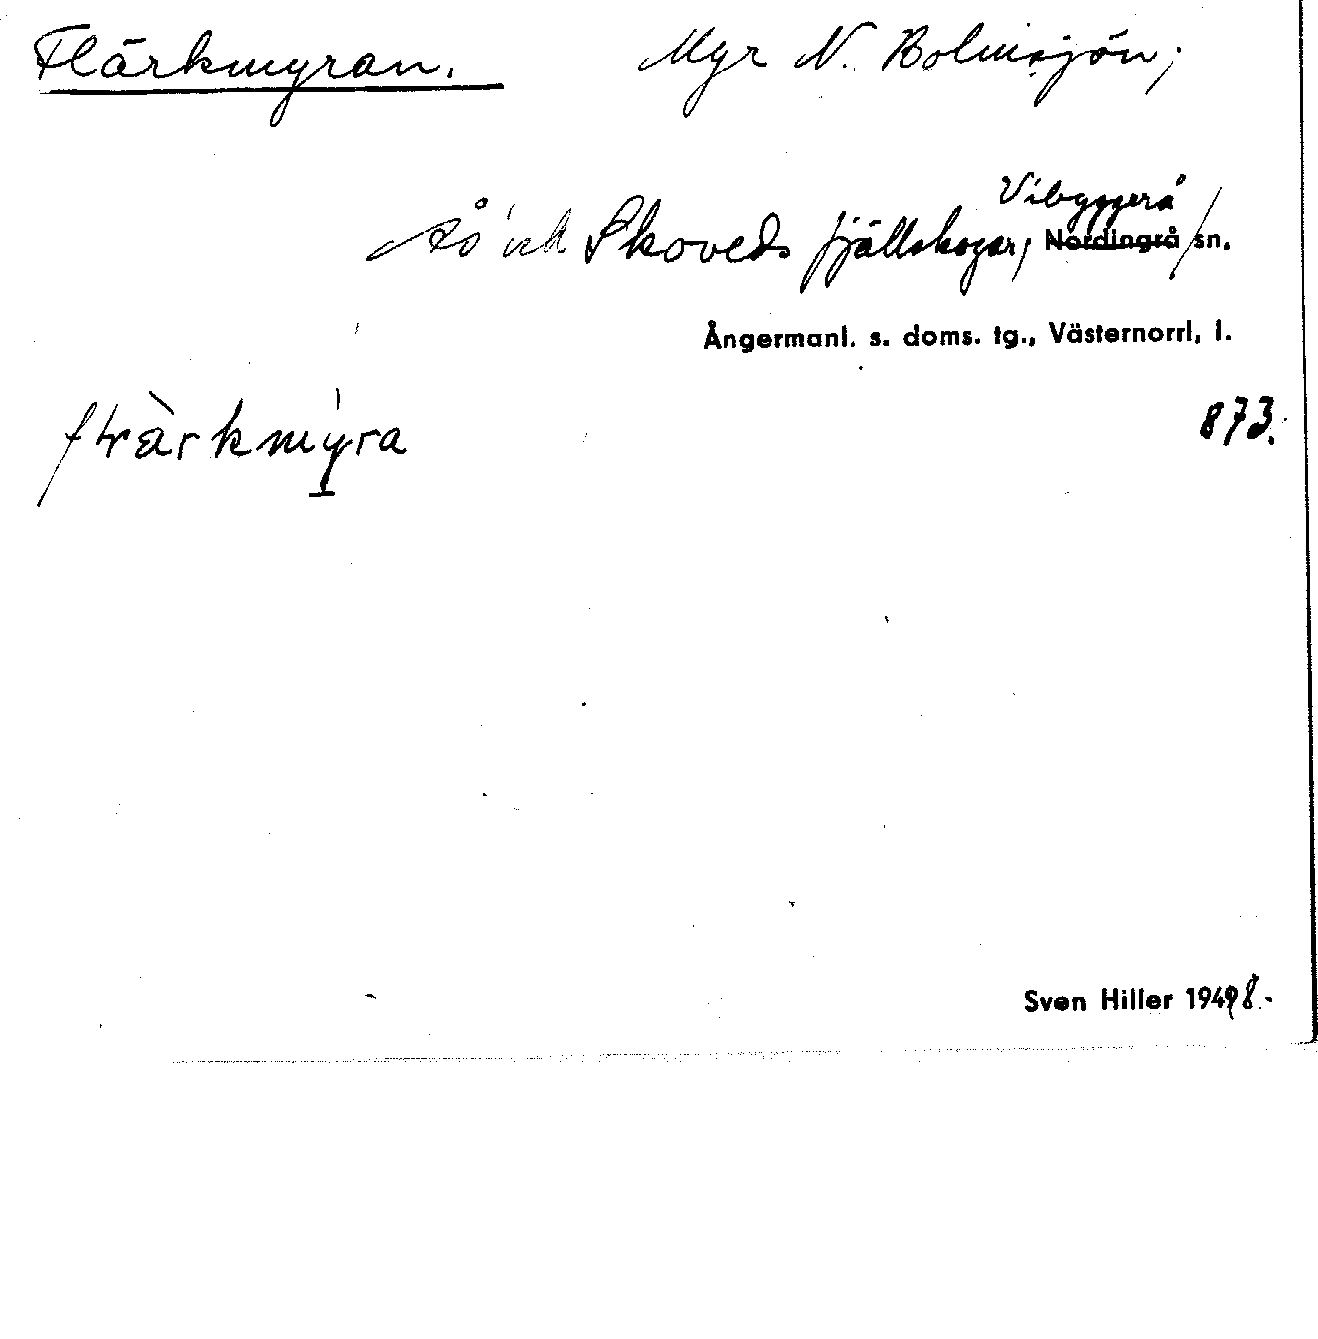 Flärkmyran. Myr N. Bolmsjön;
Vibyggerå
och Skoveds fjällskogar, Nordingrå sn.
Ångermanl. s. doms. tg., Västernorrl. l.
873.
Sven Hiller 1948.